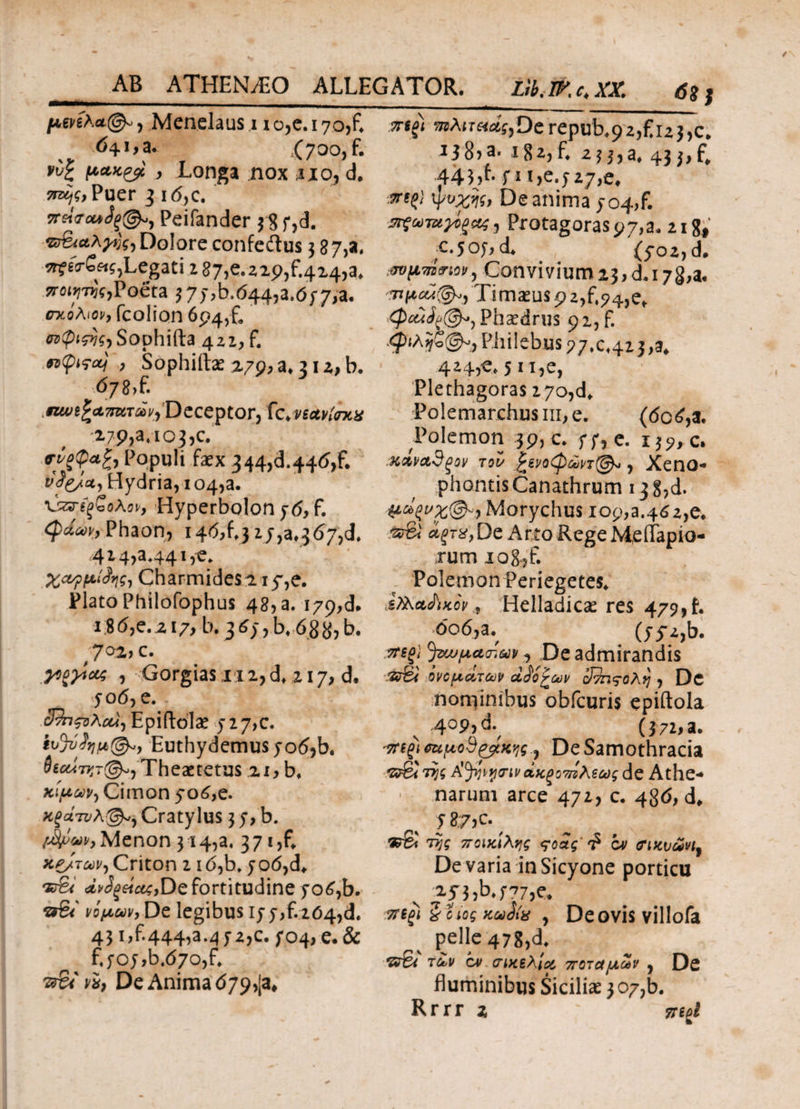 AB ATHENÆO ALLEGATOR. Lib. IV. c. XX. 683
μενέλα(ος), Menelaus 110,e.170,f.
641,a. (700,f.
νὺξ μακρὰ, Longa nox 110, d.
παῖς, Puer 316,c.
πείσανδρ(ος), Peisander 385,d.
περιαλγὴς, Dolore confectus 387,a.
πρέσβεις, Legati 287,e.229,f.424,a.
ποιητὴς, Poëta 375,b.644,a.657,a.
σκόλιον, scolion 694,f.
σοφιστὴς, Sophista 422, f.
σοφισταὶ, Sophistæ 279,a. 312, b.
678,f.
συνεξαπατῶν, Deceptor, sc. νεανίσκου
279,a.103,c.
σύρφαξ, Populi fæx 344,d.446,f.
ὑδρία, Hydria, 104,a.
ὑπέρβολον, Hyperbolon 56, f.
φάων, Phaon, 146,f.325,a.367,d.
414,a.441,e.
χαρμίδης, Charmides 215,e.
Plato Philosophus 48, a. 179,d.
186,e.217, b. 365, b. 688, b.
702, c.
γοργίας, Gorgias 112,d. 217, d.
506, e.
ἐπιστολαὶ, Epistolæ 527,c.
εὐθύδημ(ος), Euthydemus 506,b.
θεαίτητ(ος), Theætetus 21, b.
κίμων, Cimon 506,e.
κράτυλ(ος), Cratylus 35, b.
μένων, Menon 314,a. 371,f.
κρίτων, Criton 216,b. 506,d.
περὶ ἀνδρείας, De fortitudine 506,b.
περὶ νόμων, De legibus 155,f.264,d.
431,f.444,a.452,c. 504, e. &
f.505,b.670,f.
περὶ νοῦ, De Anima 679,a.
περὶ πολιτείας, De repub. 92,f.123,c.
138,a. 182,f. 233,a. 433,f.
443,f. 511,e.527,e.
περὶ ψυχῆς, De anima 504,f.
πρωταγόρας, Protagoras 97,a. 218,
c.505,d. (502,d.
συμπόσιον, Convivium 23,d.178,a.
τίμαι(ος), Timæus 92,f.94,e.
φαῖδρ(ος), Phædrus 92, f.
φίληβ(ος), Philebus 97.c.423,a.
424,e. 511,e,
Plethagoras 270,d.
Polemarchus 111, e. (606,a.
Polemon 39, c. 55, e. 159, c.
κάναθρον τοῦ ξενοφῶντ(ος), Xeno-
phontis Canathrum 138,d.
μώρυχ(ος), Morychus 109,a.462,e.
περὶ ἄρτου, De Arto Rege Messapio-
rum 108,f.
Polemon Periegetes.
ἑλλαδικὸν, Helladicæ res 479, f.
606,a. (552,b.
περὶ θαυμασίων, De admirandis
περὶ ὀνομάτων ἀδόξων ἐπιστολὴ, De
nominibus obscuris epistola
409,d. (372,a.
περὶ σαμοθρᾴκης, De Samothracia
περὶ τῆς Ἀθήνησιν ἀκροπόλεως de Athe-
narum arce 472, c. 486, d.
587,c.
περὶ τῆς ποικίλης στοᾶς τῆς ἐν σικυῶνι,
De varia in Sicyone porticu
253,b.577,e.
περὶ τοῦ δίος κωδίου, De ovis villosa
pelle 478,d.
περὶ τῶν ἐν σικελίᾳ ποταμῶν, De
fluminibus Siciliæ 307,b.
Rrrr 2 περὶ